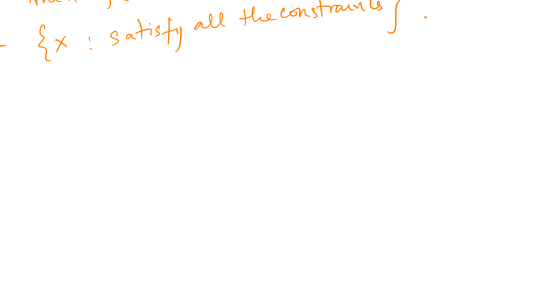 {x : satisfy all the constraints} .